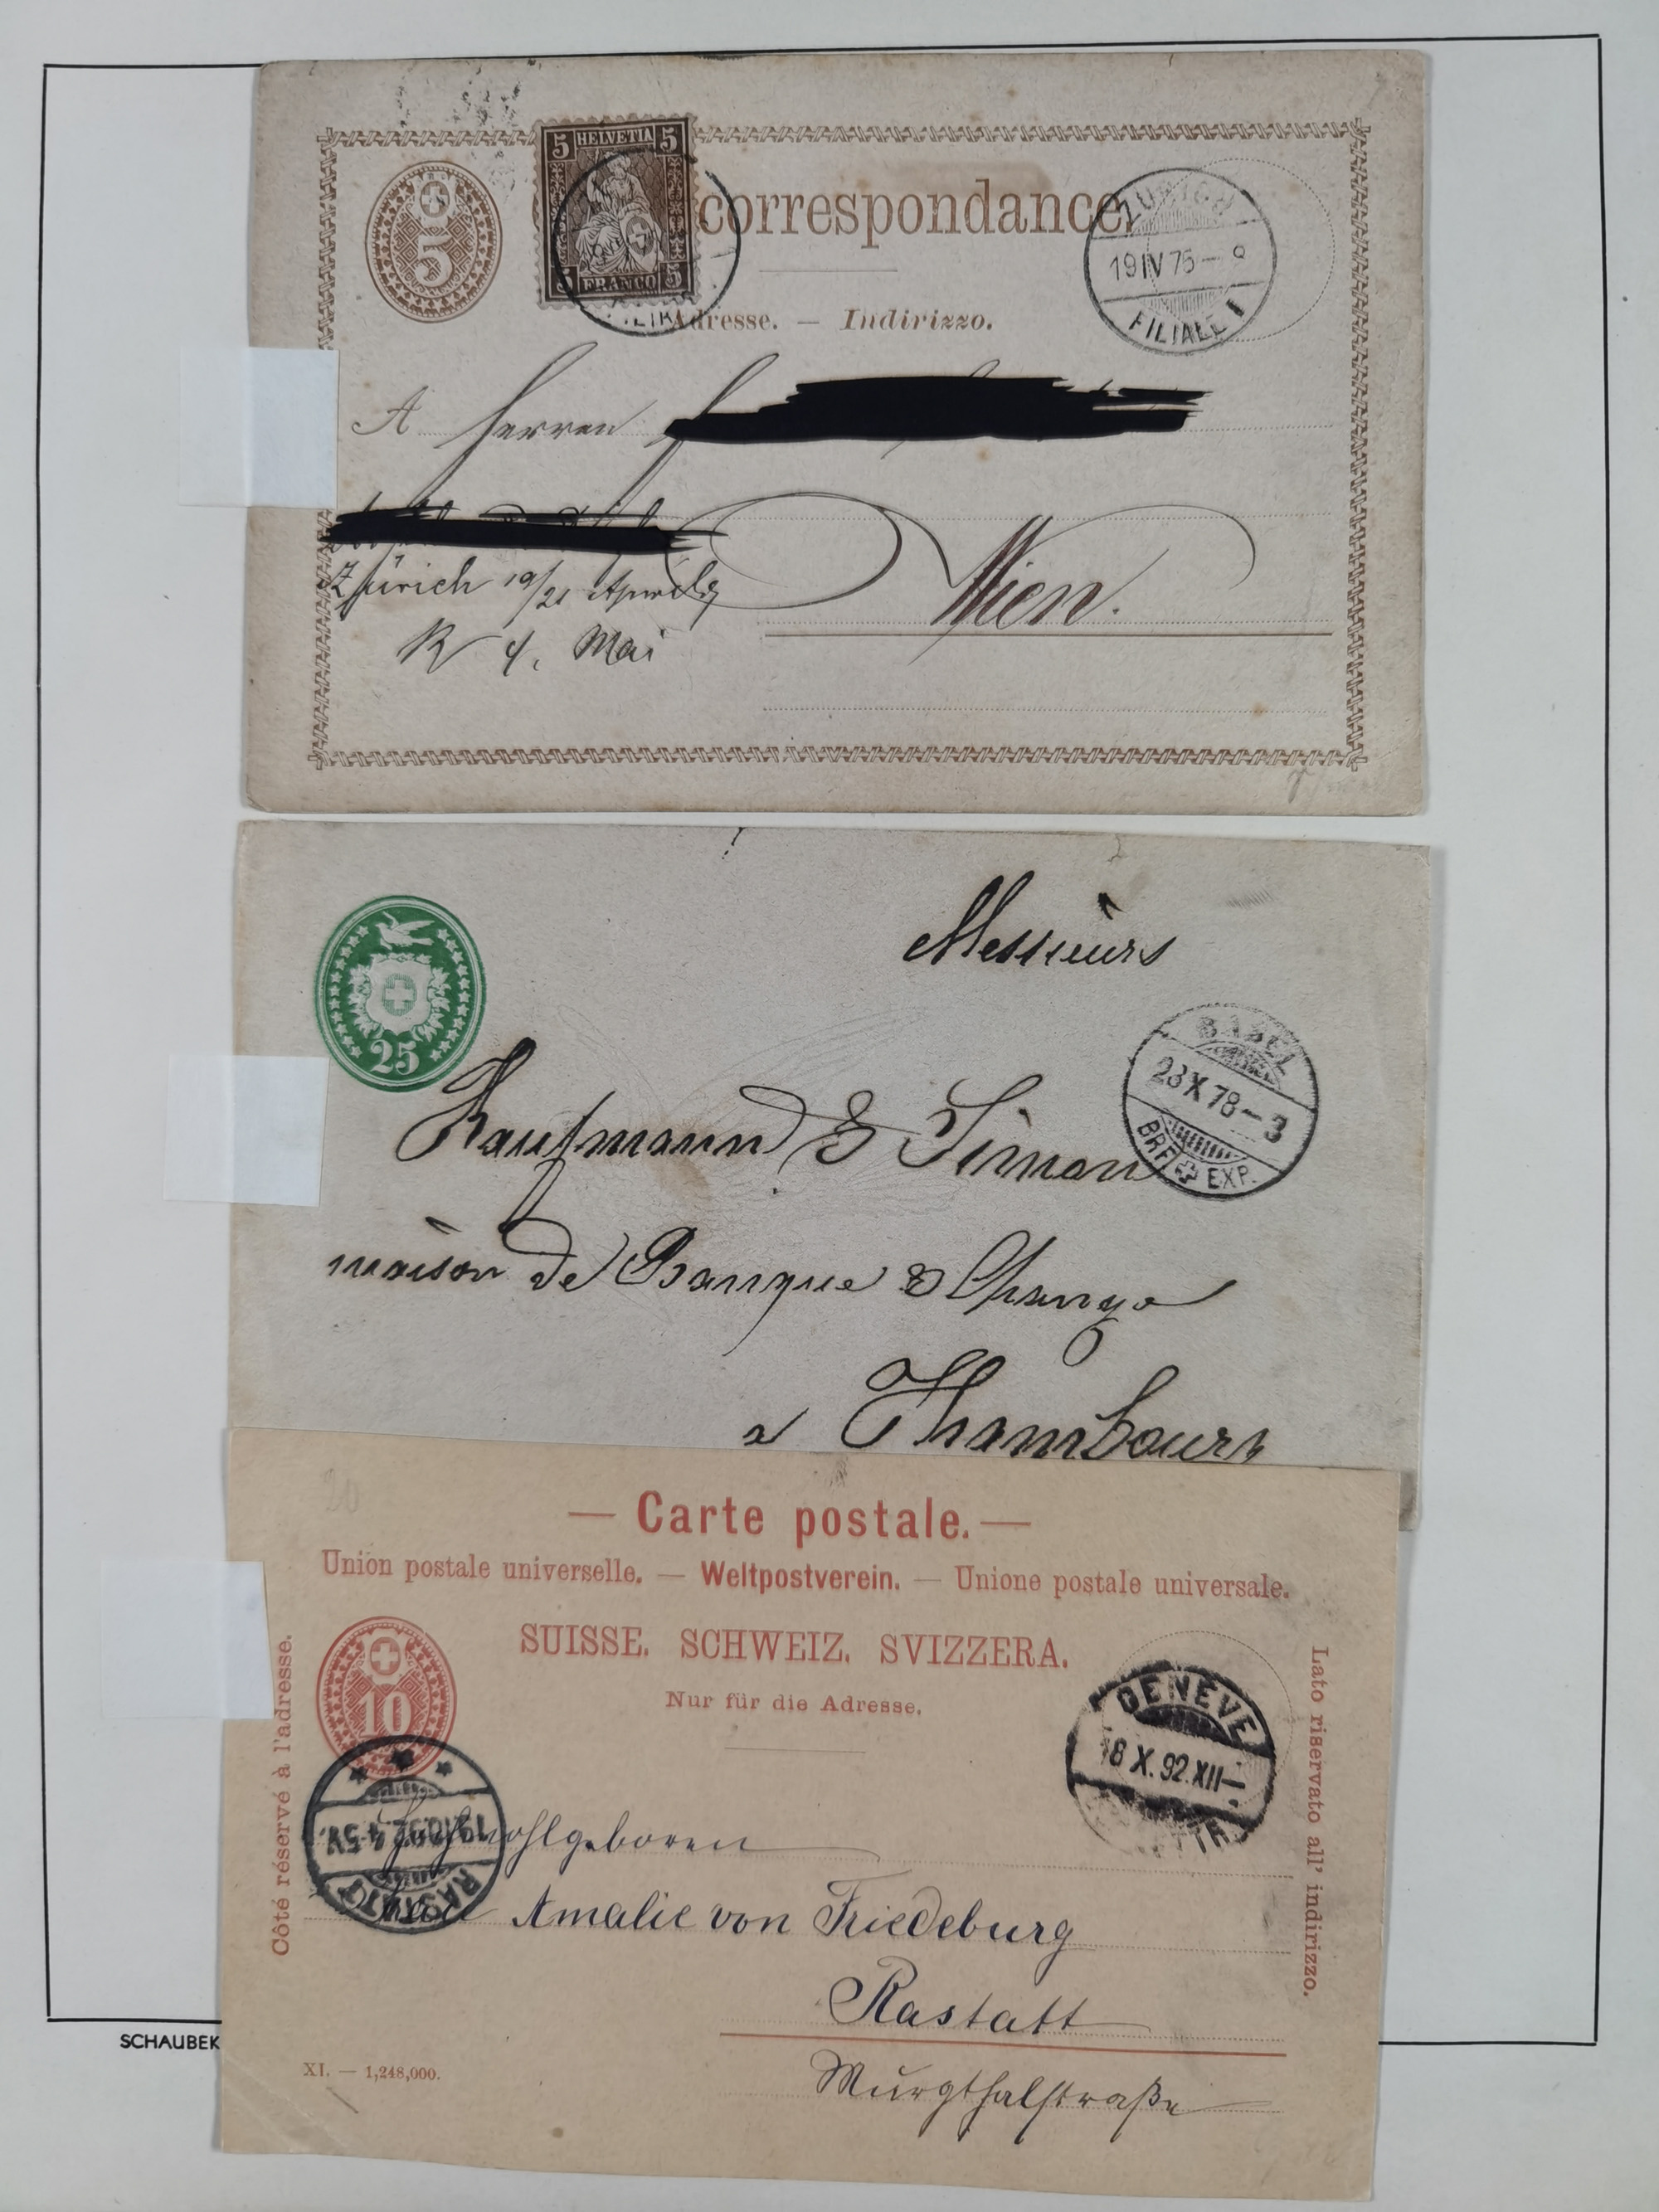 5
5 HELVETIA 5
5 FRANCO 5
correspondance.
Adresse. — Indirizzo.
ZÜRICH
19 IV 75 — 9
FILIALE I
A Herren
Zürich 19/21 April
R 4. Mai
Wien.
25
Messieurs
BASEL
23 X 78 — 3
BRF. EXP.
Kaufmann & Simon
maison de Banque & Change
a Hambourg
20
— Carte postale. —
Union postale universelle. — Weltpostverein. — Unione postale universale.
SUISSE. SCHWEIZ. SVIZZERA.
Nur für die Adresse.
Côté réservé à l'adresse.
Lato riservato all' indirizzo.
10
GENÈVE
18 X. 92. XII —
RASTATT
19.10.92. 4-5V.
Hochwohlgeboren
Frau Amalie von Friedeburg
Rastatt
Murgthalstraße
XI. — 1,248,000.
SCHAUBEK